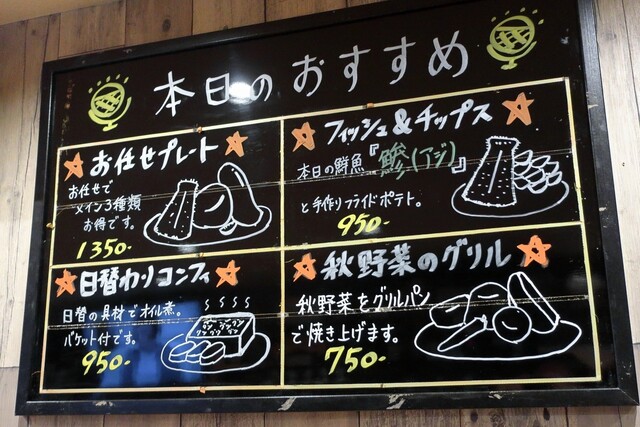 本日のおすすめ
お任せプレート
お任せで
メイン3種類
お得です。
1350-
フィッシュ&チップス
本日の鮮魚『鯵(アジ)』
と手作りフライドポテト。
950-
日替わりコンフィ
日替の具材でオイル煮。
バケット付です。
950-
秋野菜のグリル
秋野菜をグリルパン
で焼き上げます。
750-